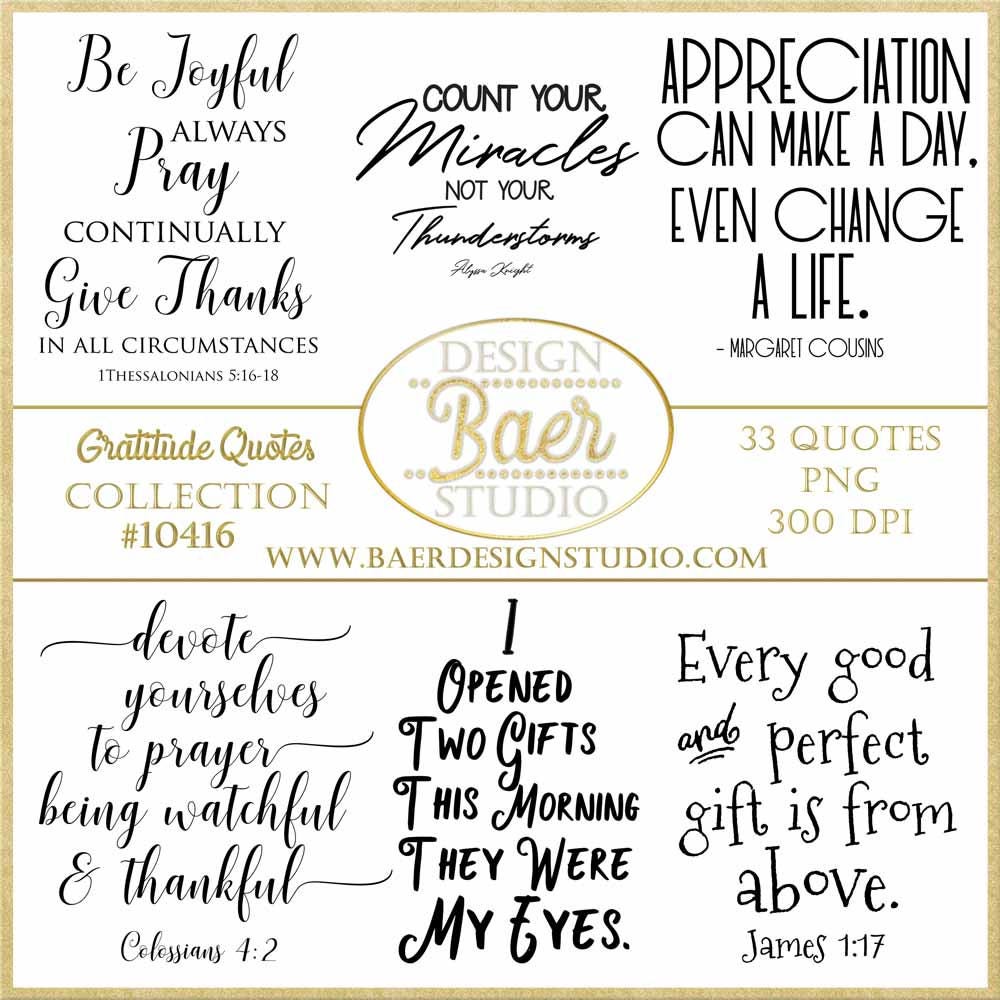 Be Joyful
ALWAYS
Pray
CONTINUALLY
Give Thanks
IN ALL CIRCUMSTANCES
1THESSALONIANS 5:16-18
COUNT YOUR
Miracles
NOT YOUR
Thunderstorms
Alyssa Knight
APPRECIATION
CAN MAKE A DAY,
EVEN CHANGE
A LIFE.
- MARGARET COUSINS
Gratitude Quotes
COLLECTION
#10416
DESIGN
Baer
STUDIO
33 QUOTES
PNG
300 DPI
WWW.BAERDESIGNSTUDIO.COM
devote
yourselves
to prayer
being watchful
& thankful
Colossians 4:2
I
OPENED
TWO GIFTS
THIS MORNING
THEY WERE
MY EYES.
Every good
and perfect
gift is from
above.
James 1:17